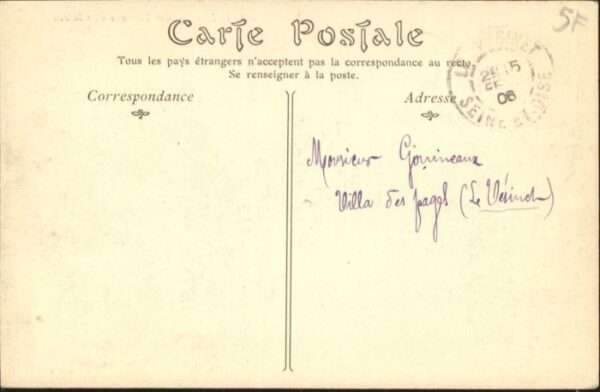 5F
Carte Postale
Tous les pays étrangers n'acceptent pas la correspondance au recto.
Se renseigner à la poste.
Correspondance
Adresse
5
06
SEINE-ET-OISE
Monsieur
Villa des pages (Le Vésinet)